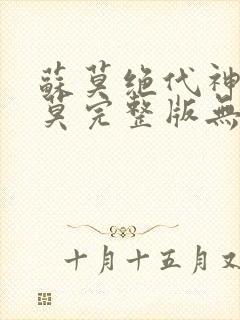 蘇莫绝代神
莫完整版無
十月十五月又